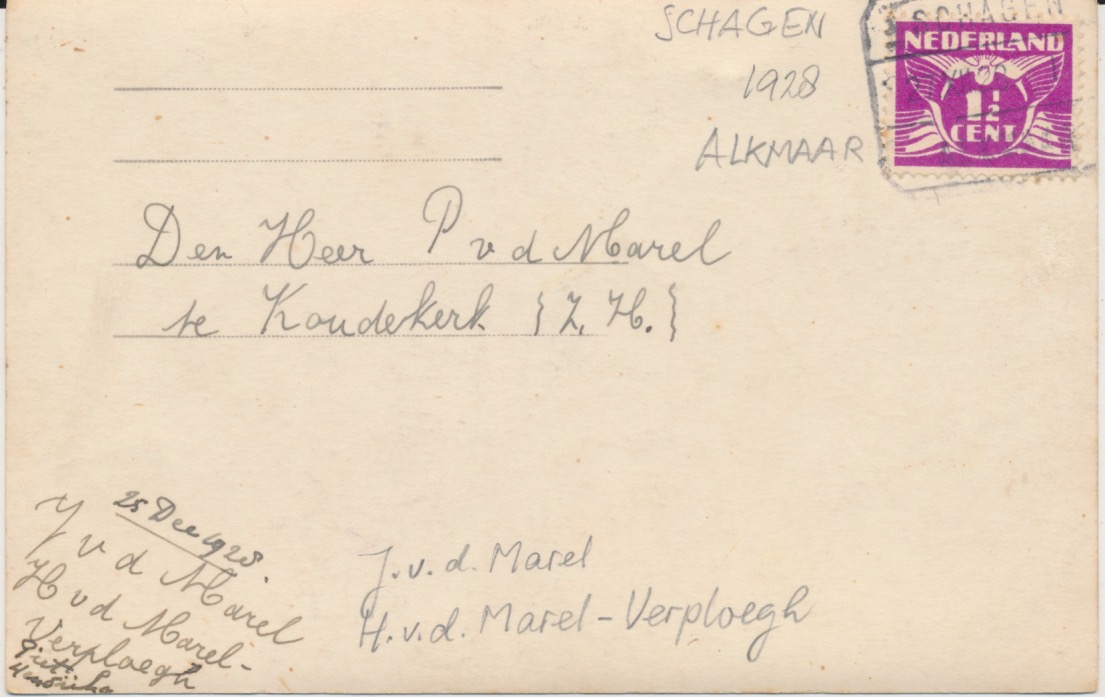 SCHAGEN
1928
ALKMAAR
SCHAGEN
NEDERLAND
1½
CENT
Den Heer P v d Marel
te Koudekerk {Z. H.}
25 Dec 1928
J v d Marel
H v d Marel-
Verploegh
J. v. d. Marel
H. v. d. Marel-Verploegh